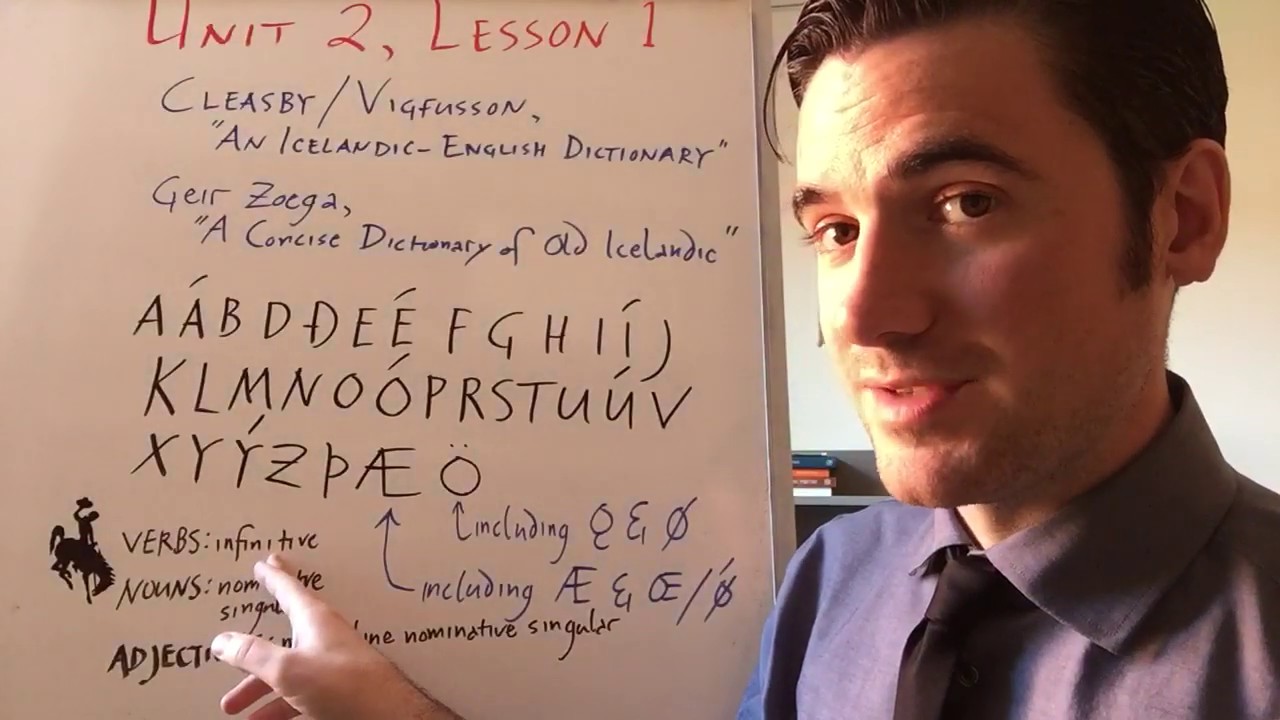 UNIT 2, LESSON 1
CLEASBY/VIGFUSSON,
"AN ICELANDIC-ENGLISH DICTIONARY"
Geir Zoega,
"A Concise Dictionary of Old Icelandic"
A Á B D Ð E É F G H I Í J
K L M N O Ó P R S T U Ú V
X Y Ý Z Þ Æ Ö
including Ǫ & Ø
VERBS: infinitive
including Æ & Œ/Ǿ
NOUNS:
nominative singular